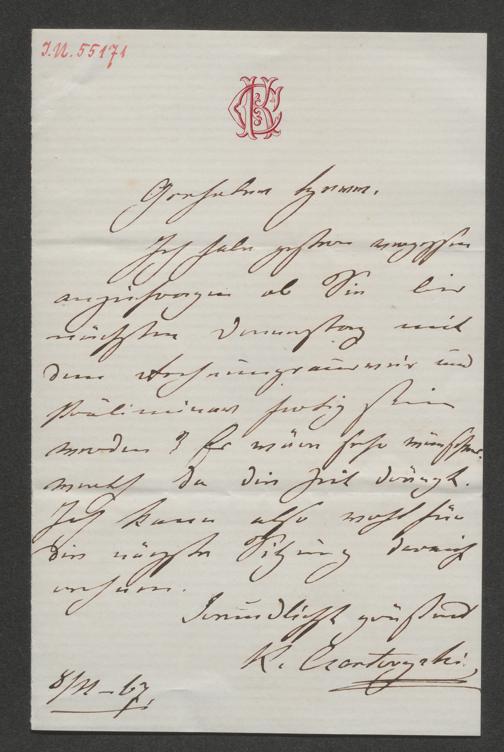 J.N. 55171
CK
Geehrter Herr.
Ich habe gestern vergessen
anzufragen ob Sie bis
nächsten Donnerstag mit
dem Rechnungs und
Präliminar fertig sein
werden? Es wäre sehr wünschens-
werth da die Zeit drängt.
Ich kann also wohl für
die nächste Sitzung darauf
rechnen.
Freundlichst grüßend
K. Czartoryski
8/11 – 67